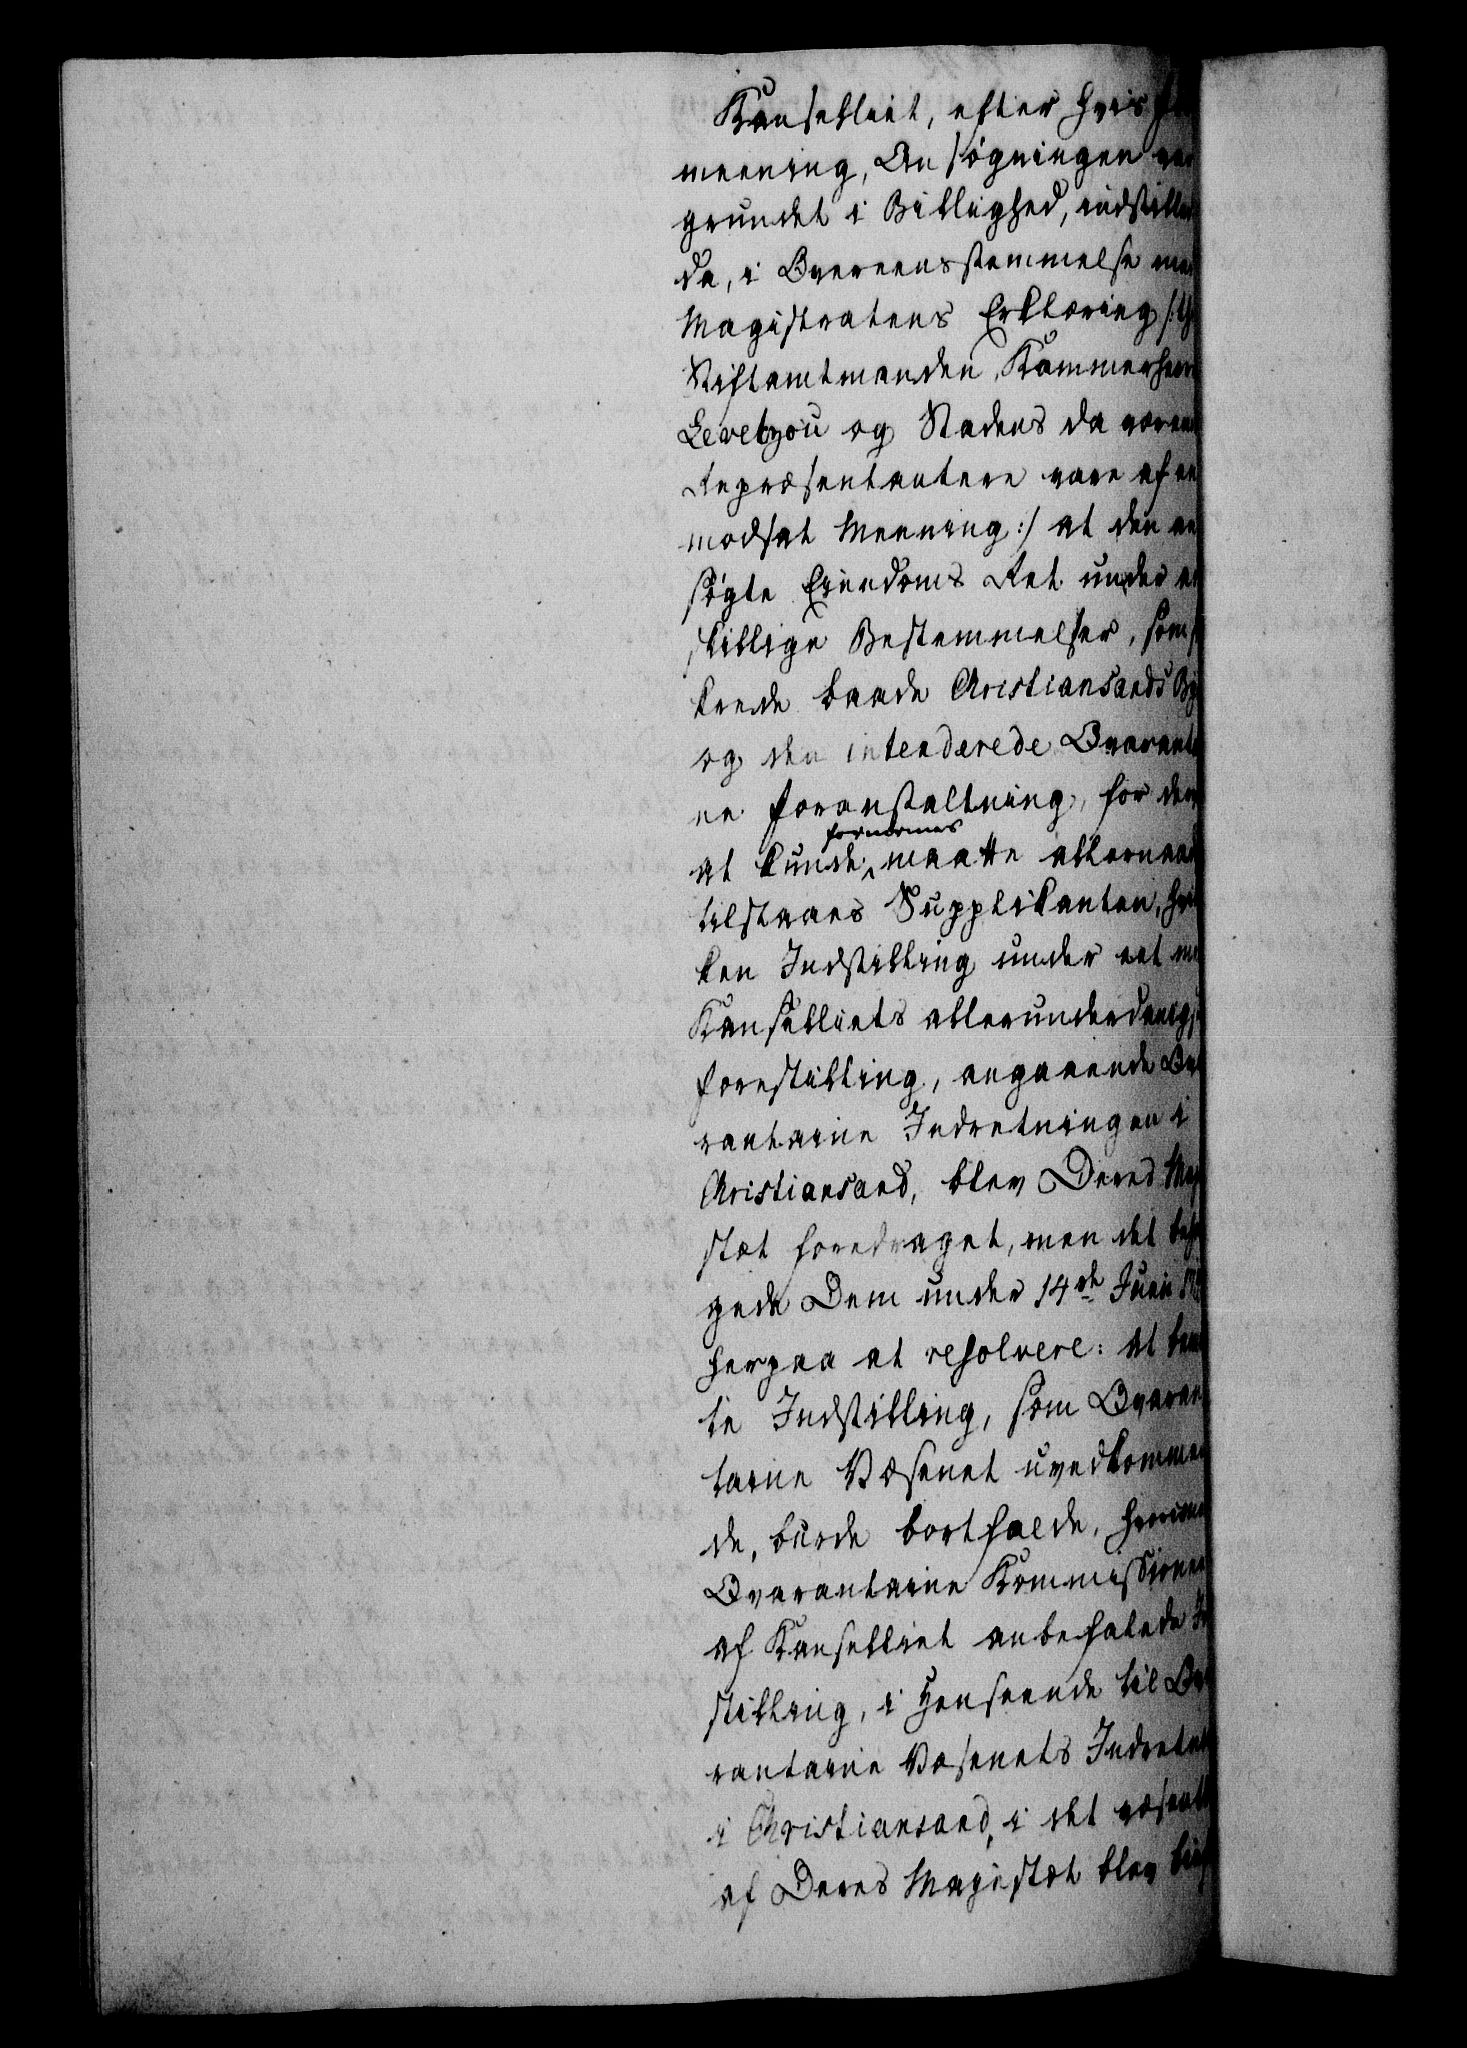 Kanselliet, efter hvis
meening, Ansøgningen var
grundet i Billighed, indstillede
da, i Overeensstemmelse med
Magistratens Erklæring /:
Stiftamtmanden, Kammerherre
Levetzou og Stadens da værende
Repræsentantere vare af en
modsat Meening :/ at den an
søgte Eiendoms Ret under ad
skillige Bestemmelser, som
krede baade Christiansands Bye
og den intenderede Qvarantai
ne Foranstaltning, for den
at kunde fornærmes maatte allernaad
tilstaaes Supplikanten, hvil
ken Indstilling under eet med
Kanselliets allerunderdanigste
Forestilling, angaaende Qva
rantaine Indretningen i
Christiansand, blev Deres Maje
stæt foredraget, men det beha
gede Dem under 14de Junii
herpaa at resolvere: at bem
te Indstilling, som Qvaran
taine Væsenet uvedkommen
de, burde bortfalde, hvorimod
Qvarantaine Kommissionens
af Kanselliet anbefalede Ind
stilling, i Henseende til Qva
rantaine Væsenets Indretning
i Christiansand, i det væsentlige
af Deres Majestæt blev